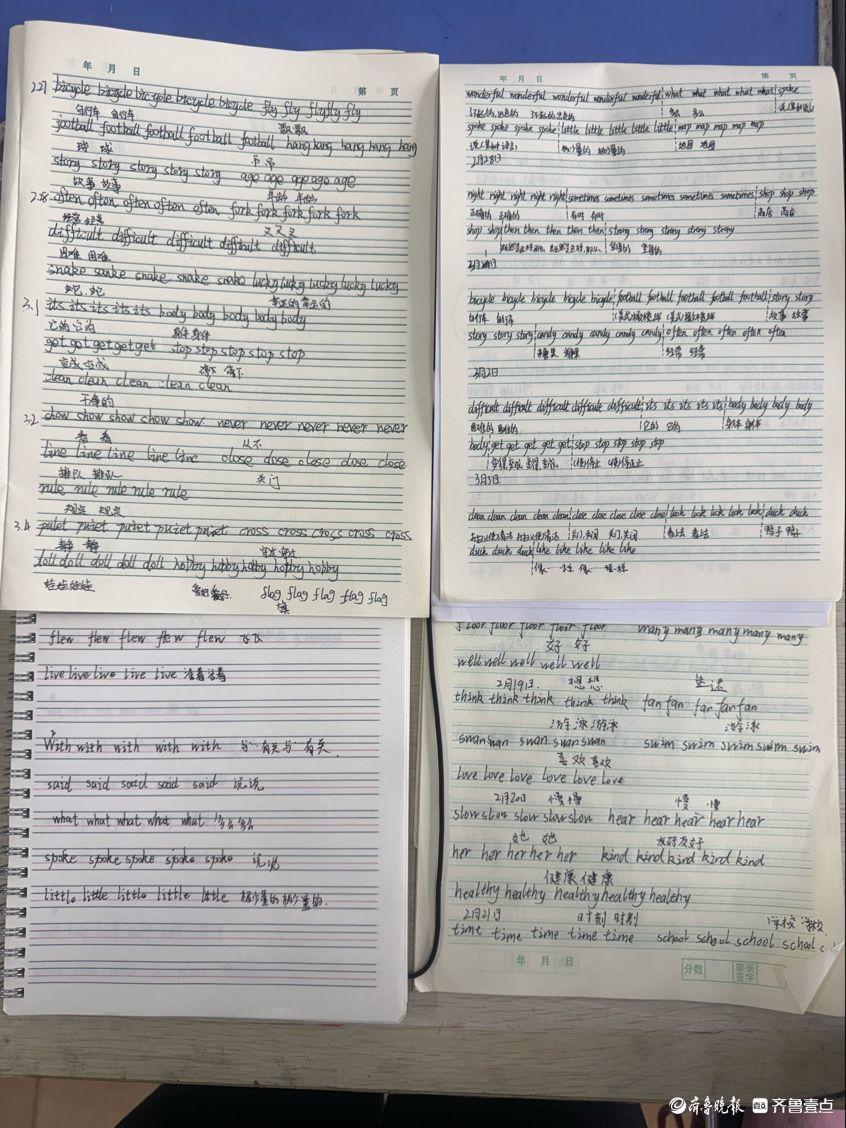 年 月 日
第 页
2.27 bicycle bicycle bicycle bicycle bicycle fly fly fly fly fly
自行车 自行车
football football football football football hang hang hang hang hang
story story story story story age age age age age
故事 故事 年龄 年龄
2.28 often often often often often fork fork fork fork fork
经常 经常 叉 叉 叉
difficult difficult difficult difficult difficult
困难 困难
snake sanke snake snake snake lucky lucky lucky lucky lucky
蛇 蛇 幸运的 幸运的
3.1 its its its its its body body body body body
它的 它的 身体 身体
got got get get get stop stop stop stop stop
变成 变成 停下 停下
clean clean clean clean clean
干净的
3.2 show show show show show never never never never never
看 看 从不
line line line line line close close close close close
排队 排队 关门
rule rule rule rule rule
规定 规定
3.4 puiet puiet puiet puiet cross cross cross cross cross
静 静
doll doll doll doll doll hobby hobby hobby hobby hobby
娃娃 娃娃
flag flag flag flag flag
旗
年 月 日
第 页
wonderful wonderful wonderful wonderful wonderful what what what what what spoke
多么 多么
spoke spoke spoke spoke little little little little little map map map map map
地图 地图
2月28日
right right right right right sometimes sometimes sometimes sometimes sometimes shop shop shop
正确的 正确的 有时 有时 商店 商店
shop shop then then then then then strong strong strong strong strong
坚强的 坚强的
bicycle bicycle bicycle bicycle bicycle football football football football football story story
自行车 自行车 故事 故事
story story story candy candy candy candy candy often often often often often
糖果 糖果 经常 经常
3月2日
difficult difficult difficult difficult difficult its its its its its body body body body
困难的 困难的 它的 它的 身体 身体
body get get get get get stop stop stop stop stop
3月3日
clean clean clean clean clean close close close close close look look look look look duck duck
关闭 关闭 看上去 看上去 鸭子 鸭子
duck duck duck like like like like like
像……一样 像……一样
flew flew flew flew flew 飞 飞
live live live live live 活着 活着
With with with with with 与…有关 与…有关
said said said said said 说 说
what what what what what 多么 多么
spoke spoke spoke spoke spoke 说 说
little little little little little 极少量的 极少量的
floor floor floor floor floor many many many many many
好 好
well well well well well
2月19日. 想 想
think think think think think fan fan fan fan fan
游泳 游泳 游泳
swan swan swan swan swan swim swim swim swim swim
喜欢 喜欢
Love Love Love Love Love Love
2月20日 慢 慢 慢 慢
slow slow slow slow slow hear hear hear hear hear
她 她 友好 友好
her her her her her kind kind kind kind kind
健康 健康
healthy healthy healthy healthy healthy
2月21日 时刻 时刻 学校 学校
time time time time time school school school school
年 月 日
分数
家长签字
齐鲁晚报 齐鲁壹点